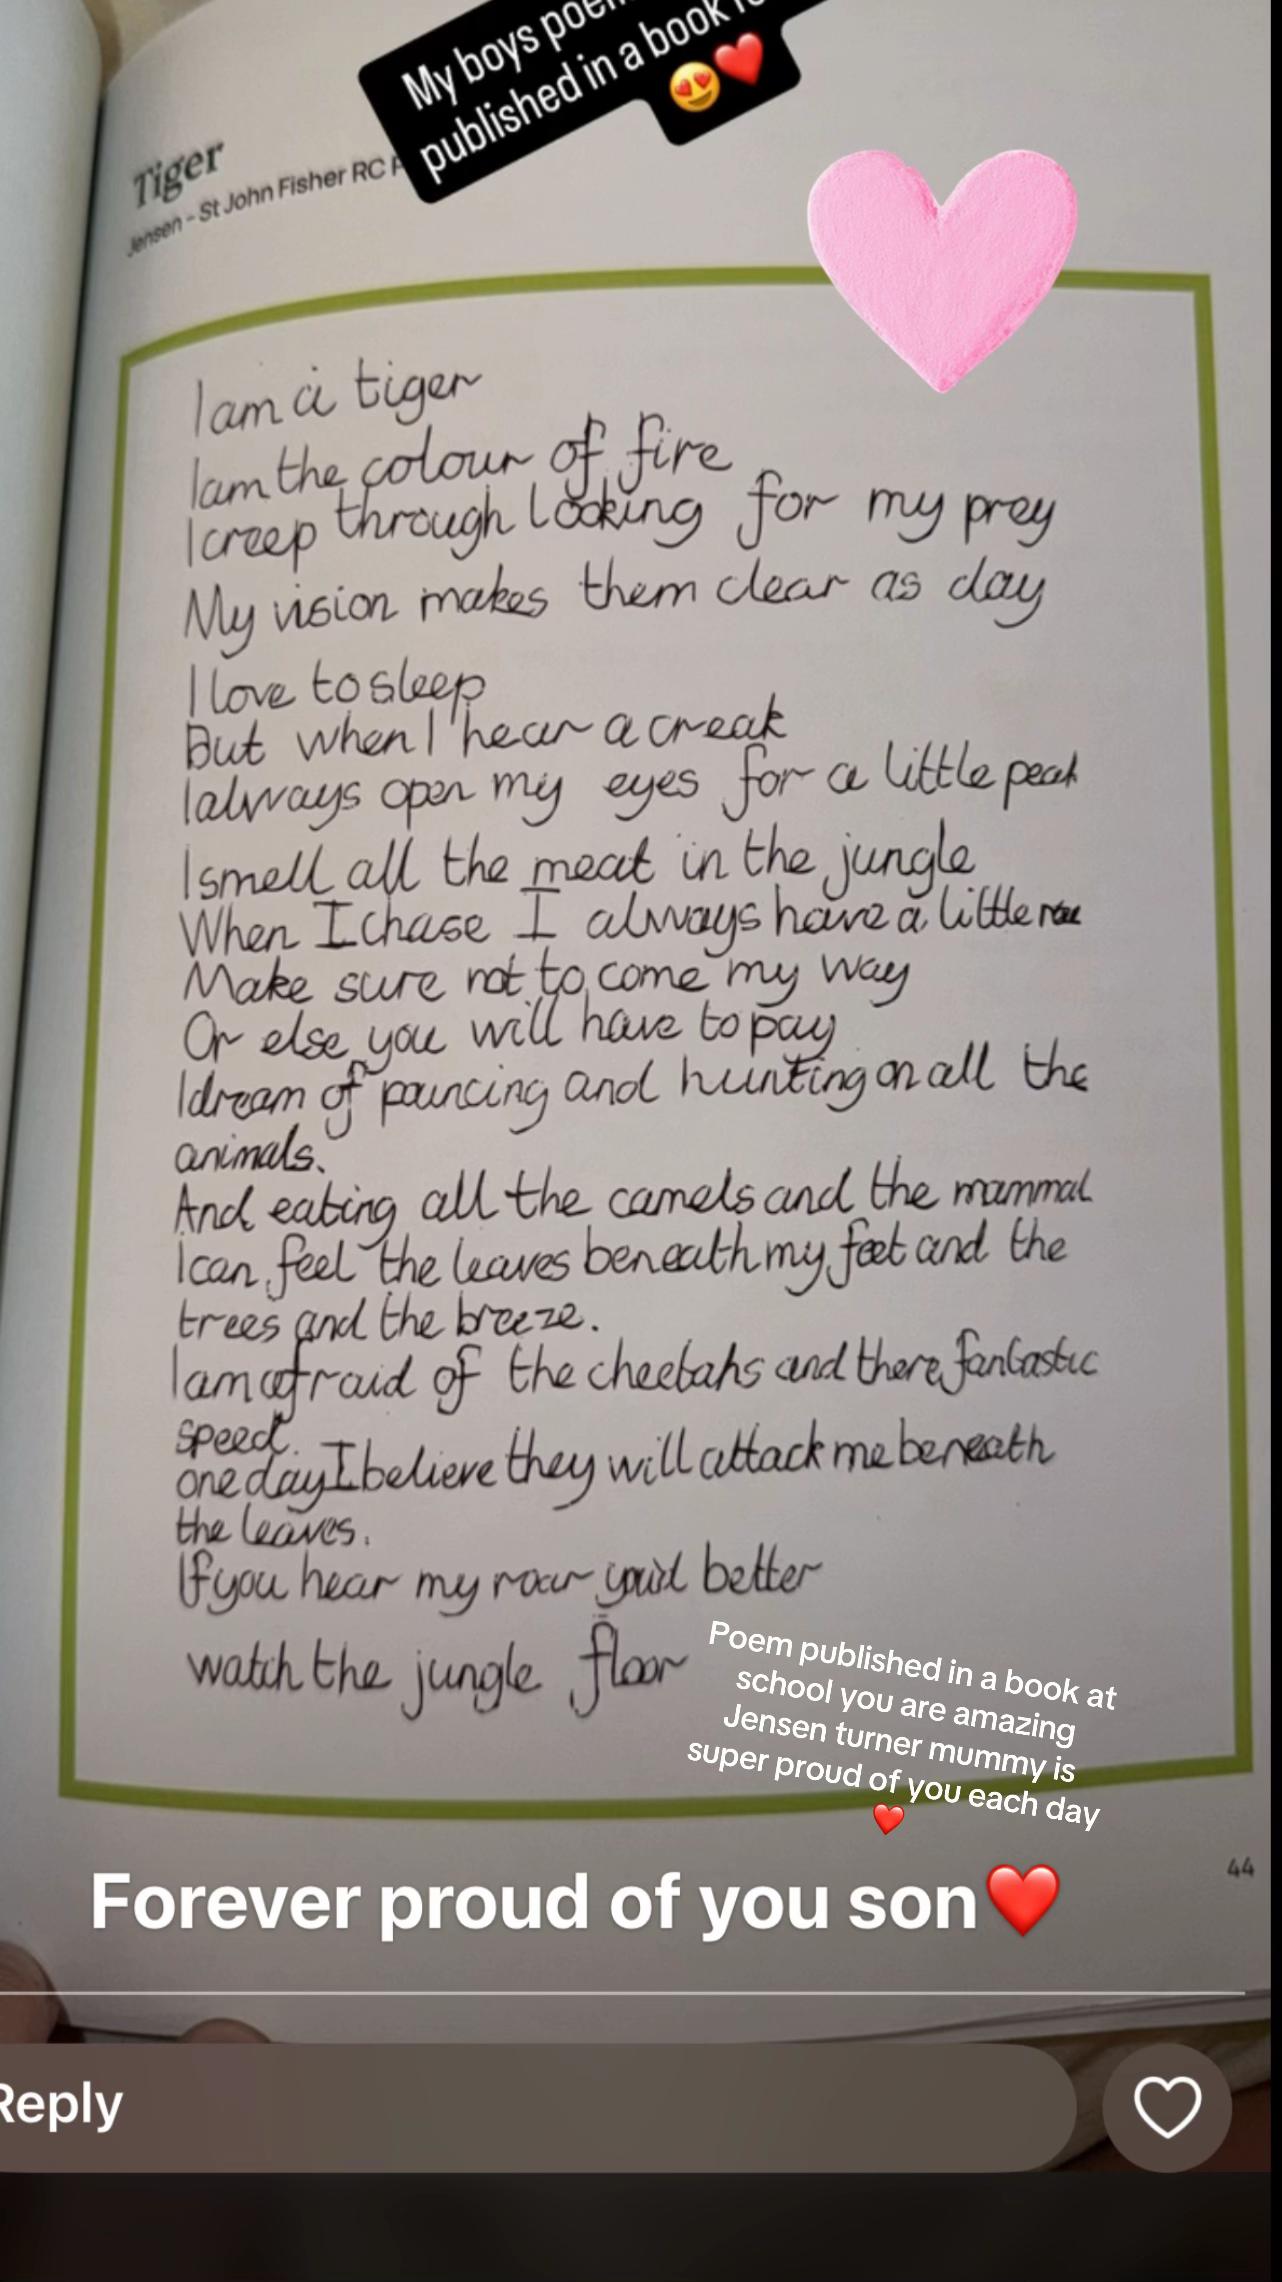 My boys poem
published in a book
😍❤️
Tiger
Jensen - St John Fisher RC
I am a tiger
I am the colour of fire
I creep through looking for my prey
My vision makes them clear as day
I love to sleep
But when I hear a creak
I always open my eyes for a little peak
I smell all the meat in the jungle
When I chase I always have a little
Make sure not to come my way
Or else you will have to pay
I dream of pouncing and hunting on all the
animals.
And eating all the camels and the mammal
I can feel the leaves beneath my feet and the
trees and the breeze.
I am afraid of the cheetahs and there fantastic
speed.
one day I believe they will attack me beneath
the leaves.
If you hear my roar you'd better
watch the jungle floor
Poem published in a book at
school you are amazing
Jensen turner mummy is
super proud of you each day
❤️
44
Forever proud of you son❤️
Reply